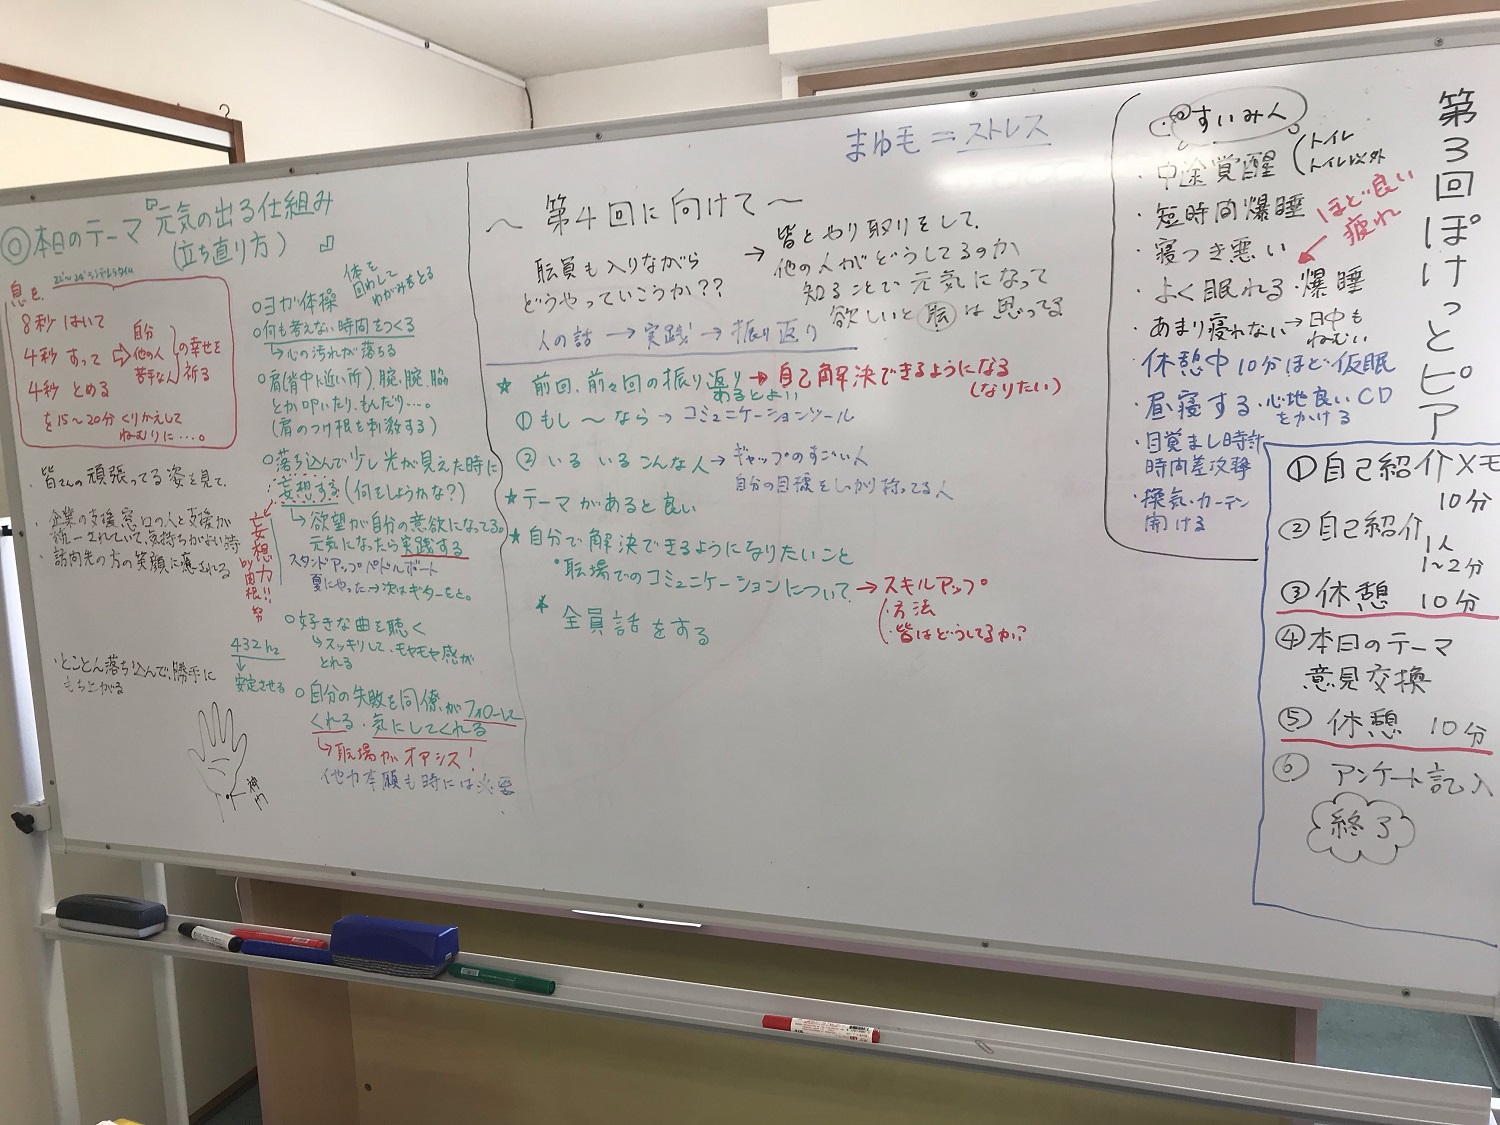 第3回ぽけっとピア
①自己紹介メモ
10分
②自己紹介
1人
1〜2分
③休憩 10分
④本日のテーマ
意見交換
⑤休憩 10分
⑥アンケート記入
終了
すいみん
・中途覚醒
トイレ
トイレ以外
・短時間爆睡
・寝つき悪い
ほど良い
疲れ
・よく眠れる・爆睡
・あまり寝れない→日中も
ねむい
・休憩中10分ほど仮眠
・昼寝する・心地良いCD
をかける
・目覚まし時計
時間差攻撃
・換気・カーテン
開ける
まゆ毛=ストレス
〜第4回に向けて〜
職員も入りながら
どうやっていこうか??
→皆とやり取りをして、
他の人がどうしてるのか
知ることで元気になって
欲しいと職は思ってる
人の話→実践→振り返り
★前回、前々回の振り返り
あるとよい
→自己解決できるようになる
(なりたい)
①もし〜なら→コミュニケーションツール
②いるいるこんな人→ギャップのすごい人
自分の目標をしっかり持ってる人
★テーマがあると良い
★自分で解決できるようになりたいこと
・職場でのコミュニケーションについて→スキルアップ
・方法
・皆はどうしてるか?
★全員話をする
◎本日のテーマ『元気の出る仕組み
(立ち直り方)』
息を、
8秒はいて
4秒すって
4秒とめる
⇨自分
他の人
苦手な人
の幸せを
祈る
を15〜20分くりかえして
ねむりに…。
・皆さんの頑張ってる姿を見て、
・企業の支援窓口の人と支援が
統一されていて、気持ちがよい時
・訪問先の方の笑顔に癒される
・とことん落ち込んで、勝手に
もち上がる
神門
○ヨガ体操
体を
回わして
ゆがみをとる
○何も考えない時間をつくる
↳心の汚れが落ちる
○肩(背中に近い所)、腕、腕、脇
とか叩いたり、もんだり…。
(肩のつけ根を刺激する)
○落ち込んで少し光が見えた時に
妄想する(何をしようかな?)
↳欲望が自分の意欲になってる。
元気になったら実践する
スタンドアップパドルボート
夏にやった→次はギターをと。
妄想力!!
○好きな曲を聴く
↳スッキリして、モヤモヤ感が
とれる
432hz
↓
安定させる
○自分の失敗を同僚がフォローして
くれる・気にしてくれる
↳職場がオアシス!
他力本願も時には必要